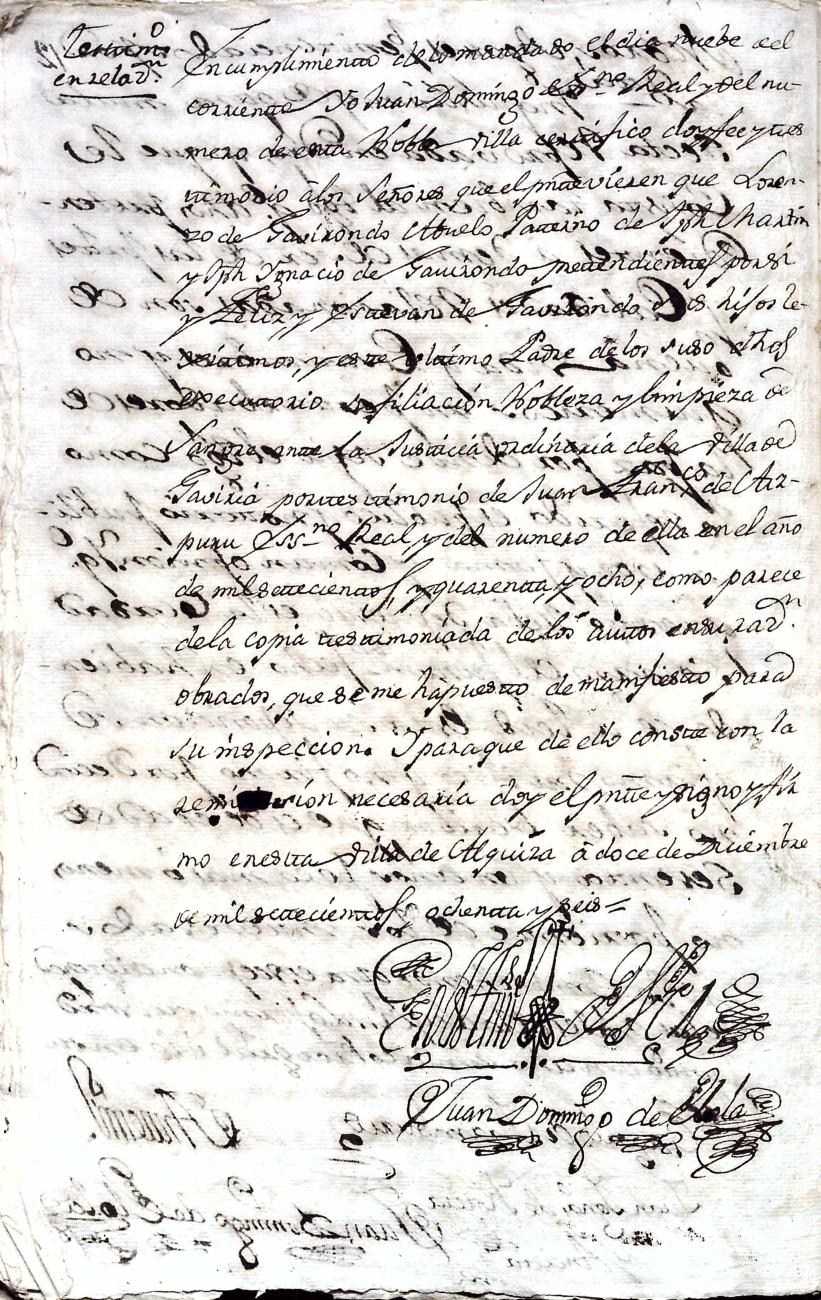 Testimo.
en relazn
En cumplimiento de lo mandado el dia nuebe del
corriente Yo Juan Domingo ess.no Real y del nu-
mero de esta Noble villa certifico doy fee y tes
timonio à los Señores que el pnte vieren que Loren-
zo de Gavirondo Abuelo Paterno de Jph Martin
y Jph Ygnacio de Gavirondo pretendientes por si
y Feliz, y Estevan de Gavirondo sus hijos le-
xitimos, y este Ultimo Padre de los suso dhos
executorio su filiación Nobleza y limpieza de
Sangre ante la Justicia ordinaria de la villa de
Gaviria por testimonio de Juan Franco. de Az-
puru Ess.no Real, y del numero de ella en el año
de mil setecientos, y quarenta, y ocho, como parece
de la copia testimoniada de los autos en su razn.
obrados, que se me há puesto de manifiesto para
su inspeccion. Y para que de ello conste con la
remision necesaria doy el pnte y signo y fir
mo en esta villa de Alquiza á doce de Diciembre
de mil setecientos ochenta y seis =
Juan Domingo de Elola